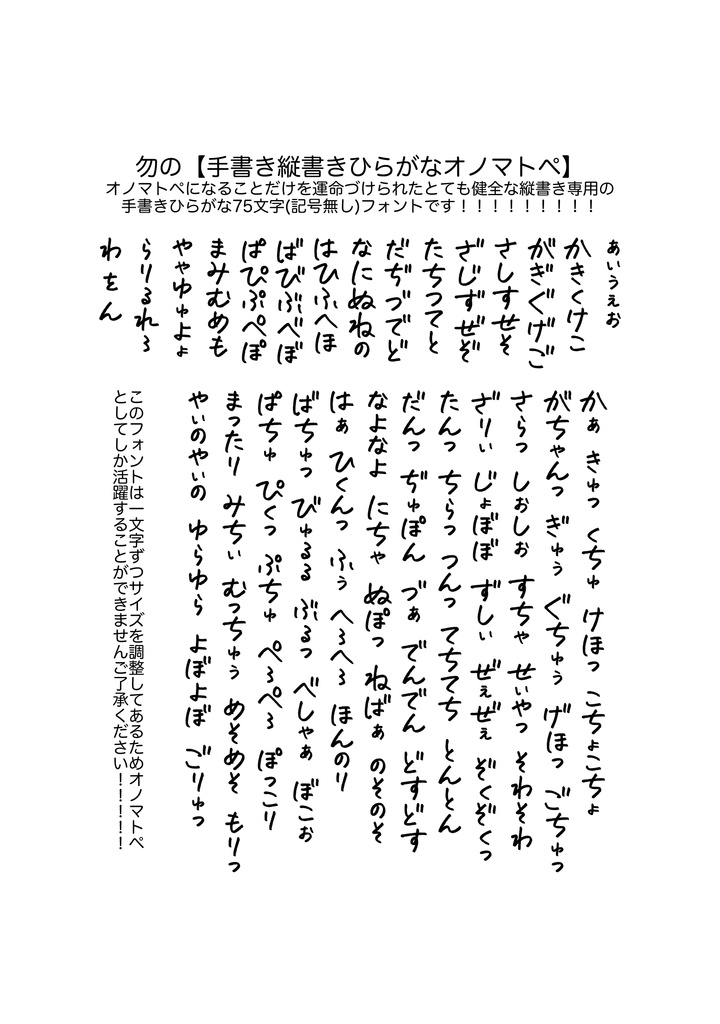 勿の【手書き縦書きひらがなオノマトペ】
オノマトペになることだけを運命づけられたとても健全な縦書き専用の
手書きひらがな75文字(記号無し)フォントです！！！！！！！！！
ぁぃぅぇぉ
かきくけこ
がぎぐげご
さしすせそ
ざじずぜぞ
たちつてと
だぢづでど
なにぬねの
はひふへほ
ばびぶべぼ
ぱぴぷぺぽ
まみむめも
やゃゆゅよょ
らりるれろ
わをん
かぁ きゅっ くちゅ けほっ こちょこちょ
がちゃんっ ぎゅぅ ぐちゅぅ げほっ ごちゅっ
さらっ しぉしぉ すちゃ せぃやっ そわそわ
ざりぃ じょぼぼ ずしぃ ぜぇぜぇ ぞくぞくっ
たんっ ちらっ つんっ てちてち とんとん
だんっ ぢゅぽん づぁ でんでん どすどす
なよなよ にちゃ ぬぽっ ねばぁ のそのそ
はぁ ひくんっ ふぅ へろへろ ほんのり
ばちゅっ びゅるる ぶるっ べしゃぁ ぼこぉ
ぱちゅ ぴくっ ぷちゅ ぺろぺろ ぽっこり
まったり みちぃ むっちゅぅ めそめそ もりっ
やぃのやぃの ゆらゆら よぼよぼ ごりゅっ
このフォントは一文字ずつサイズを調整してあるためオノマトペ
としてしか活躍することができませんご了承ください！！！！！